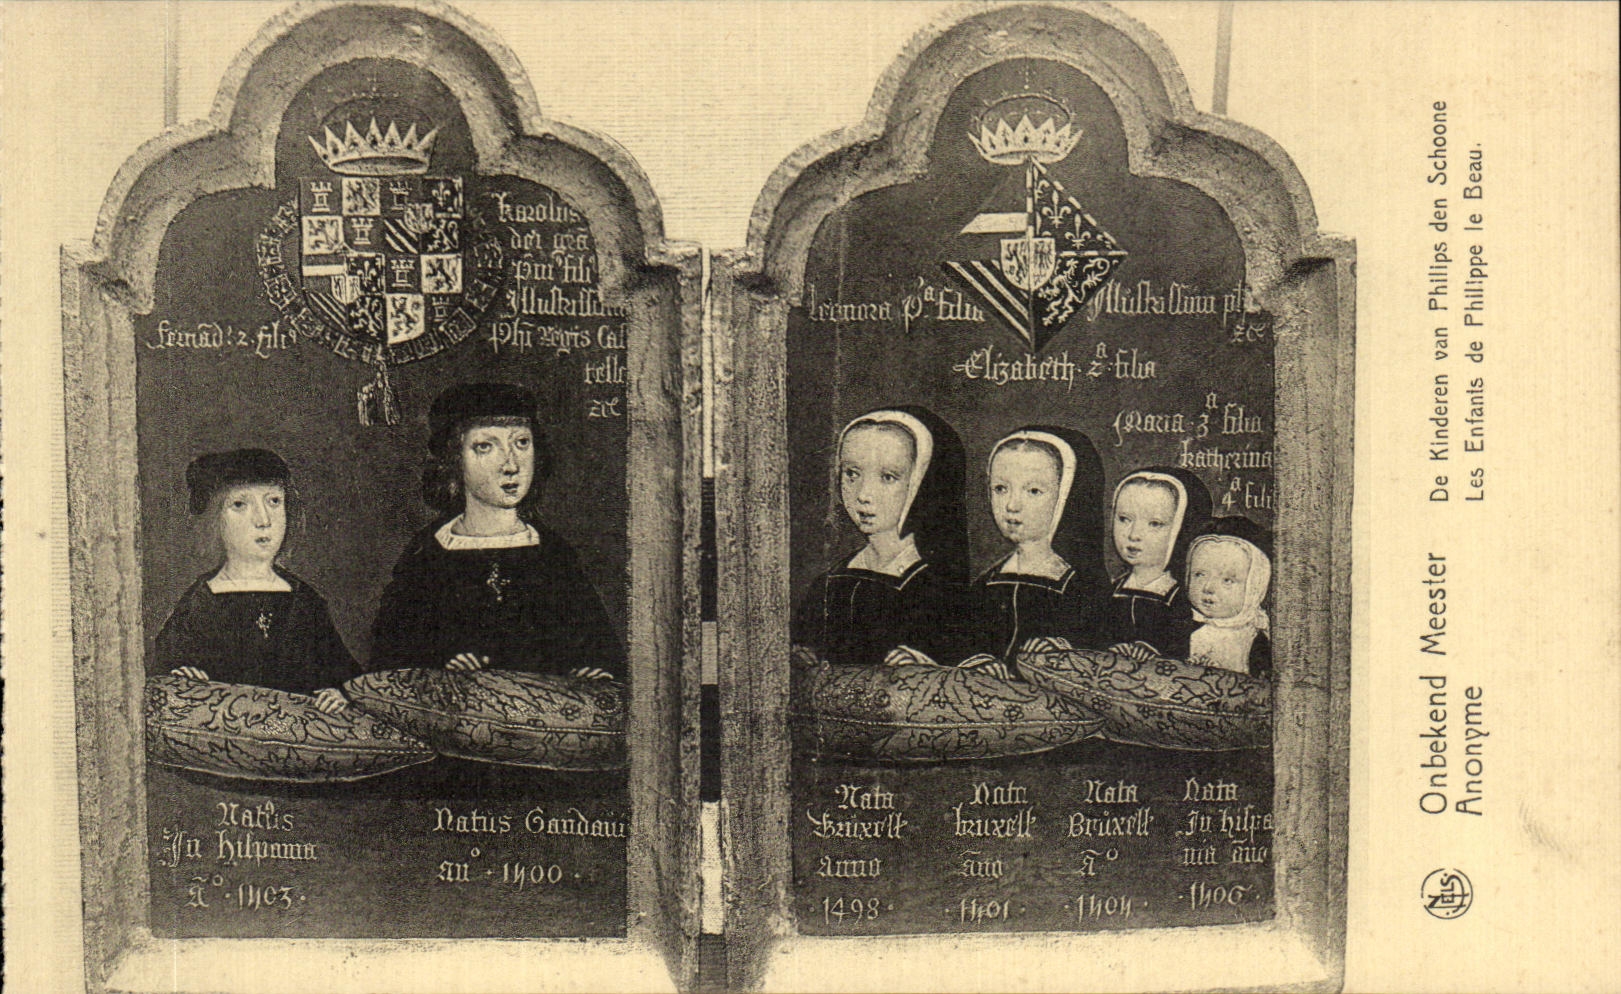 Karolus
dei grã
pm' fili'
Illustrissim
Phi regis Cas
telle
zc
fernãd' · 2 · fili'
Natus
In hispania
Aº · 1503 ·
Natus Gandavi
anº · 1500 ·
Leonora pª filia
Illustrissim ph
zc
Elizabeth · 2ª · filia
Maria · 3ª filia
Katherina
4ª fili
Nata
Bruxell
Anno
· 1498 ·
Nata
bruxell
ãno
· 1501 ·
Nata
Bruxell
Aº
· 1505 ·
Nata
In hispa
nia ãno
· 1506 ·
Onbekend Meester De Kinderen van Philips den Schoone
Anonyme Les Enfants de Philippe le Beau.
NELS